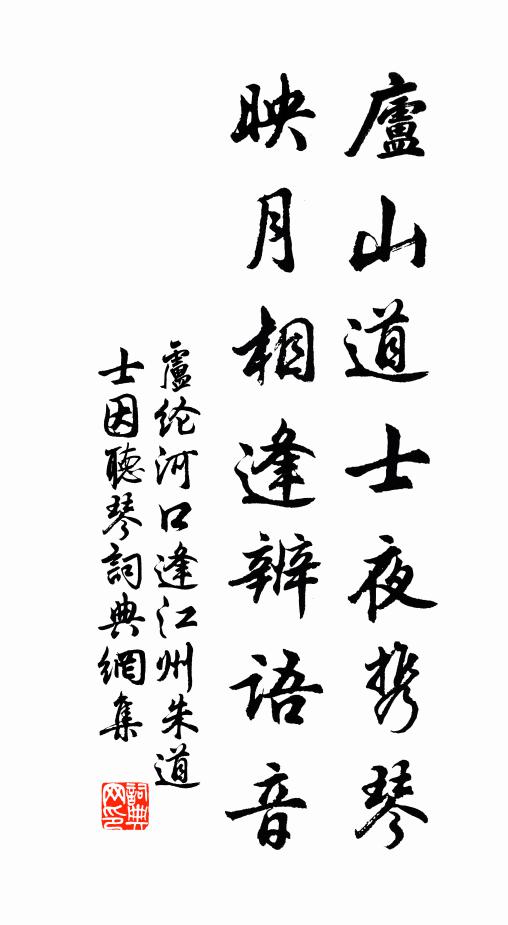 廬山道士夜携琴
映月相逢辨語音
盧纶河口逢江州朱道
士因聽琴詞典網集
詞典
网印